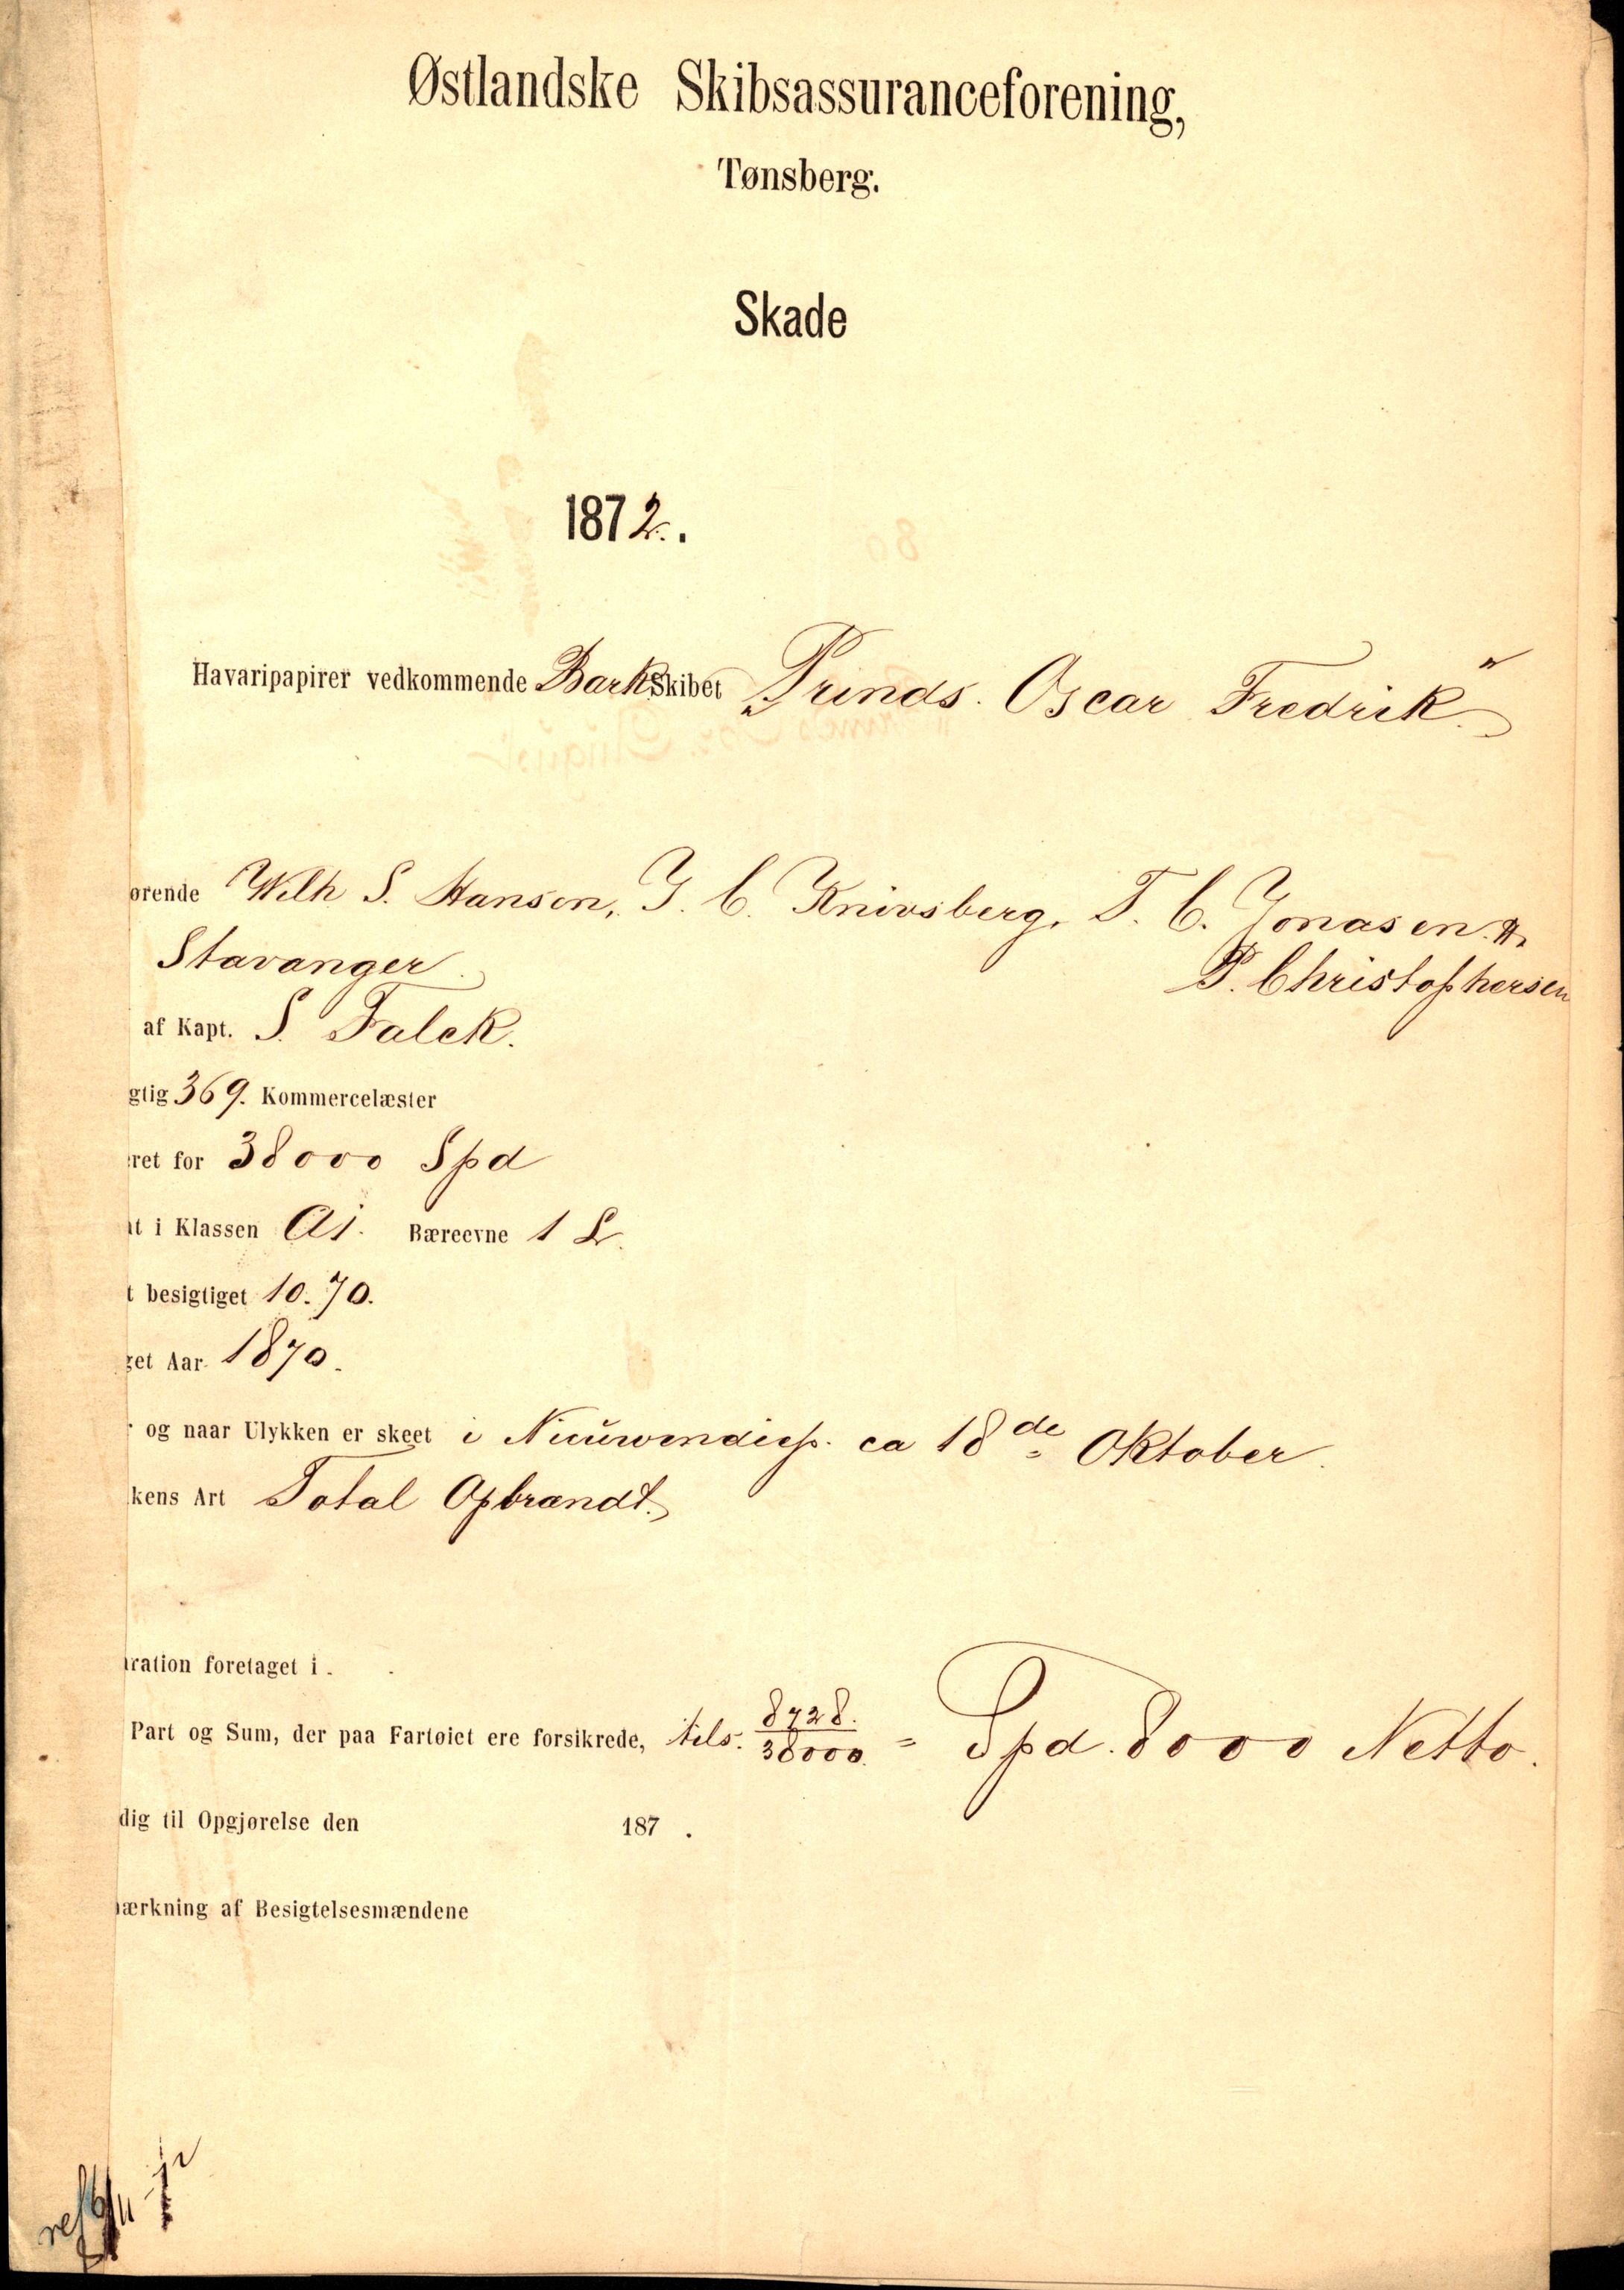 Østlandske Skibsassuranceforening,
Tønsberg.
Skade
1872.
Havaripapirer vedkommende Bark Skibet „Prinds Oscar Fredrik"
ørende Wilh S. Hansen, I. C. Knivsberg, T. C. Jonasen &
Stavanger. P. Christophersen
af Kapt. S. Falck.
gtig 369. Kommercelæster
ret for 38000 Spd
t i Klassen A1. Bæreevne 1 L.
t besigtiget 10.70.
get Aar 1870.
og naar Ulykken er skeet i Nieuwendiep. ca 18de Oktober.
kens Art Total Opbrændt.
ration foretaget i.
Part og Sum, der paa Fartøiet ere forsikrede, tils. 8728./38000. = Spd. 8000 Netto.
dig til Opgjørelse den 187 .
ærkning af Besigtelsesmændene